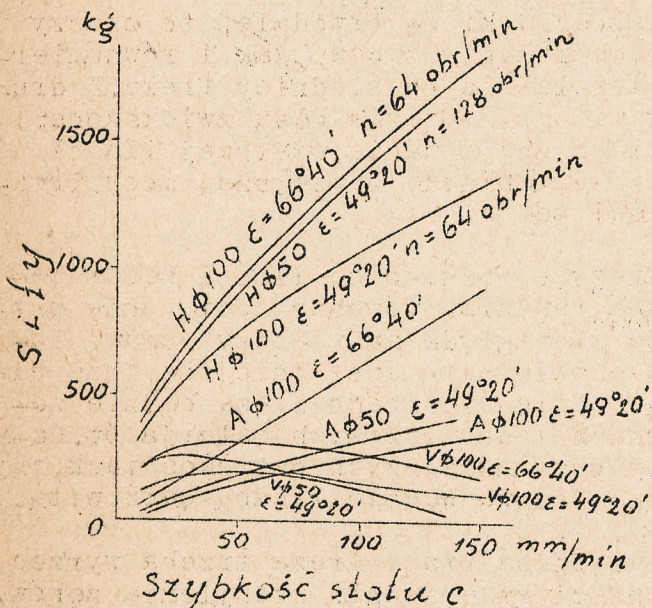 kg
1500
1000
500
0
Siły
Hφ100 ε=66°40' n=64 obr/min
Hφ50 ε=49°20' n=128 obr/min
Hφ100 ε=49°20' n=64 obr/min
Aφ100 ε=66°40'
Aφ50 ε=49°20'
Aφ100 ε=49°20'
Vφ100 ε=66°40'
Vφ50
ε=49°20'
Vφ100 ε=49°20'
50 100 150 mm/min
Szybkość stołu c